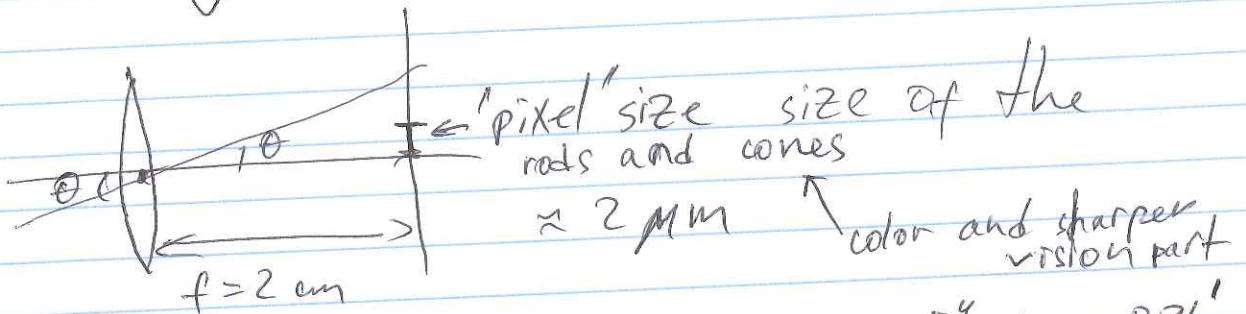 "pixel" size size of the
θ θ rods and cones
≈ 2 μm color and sharper
vision part
f = 2 cm